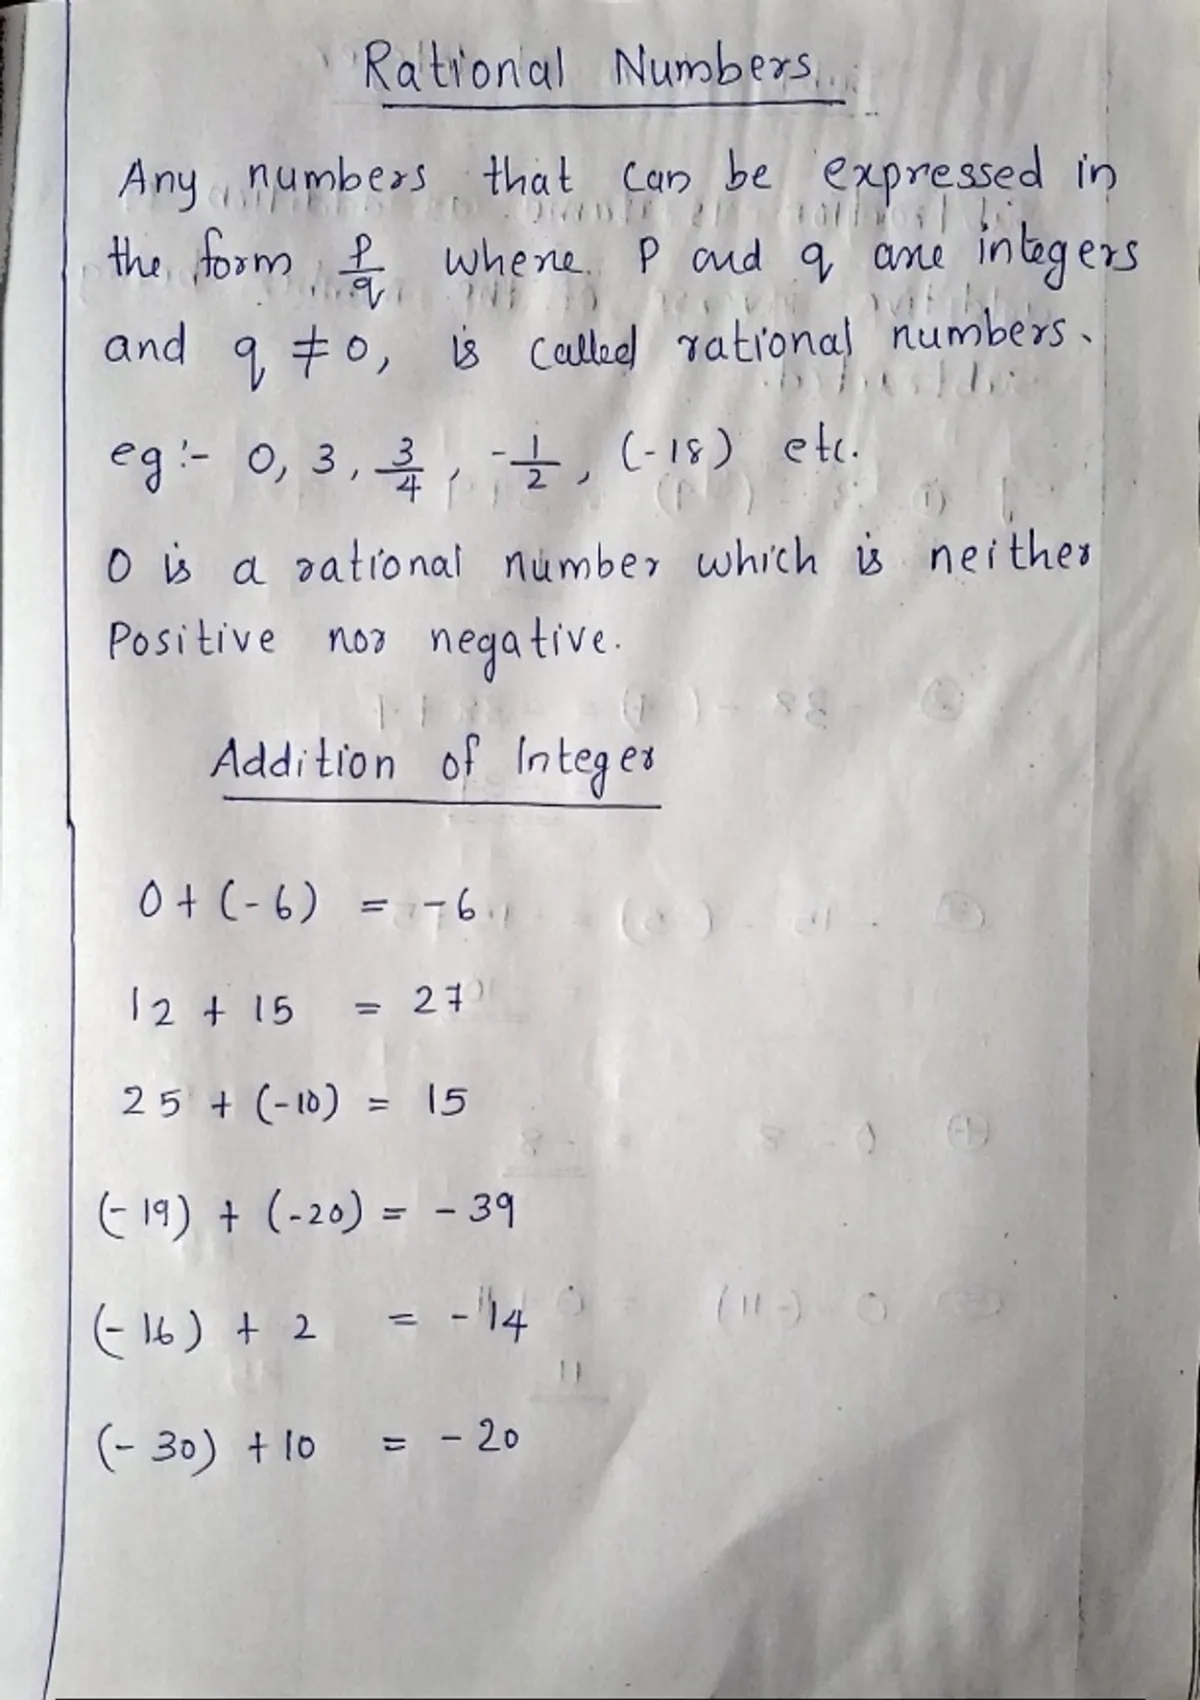 Rational Numbers
Any numbers that can be expressed in
the form p/q where P and q are integers
and q ≠ 0, is called rational numbers.
eg:- 0, 3, 3/4, -1/2, (-18) etc.
0 is a rational number which is neither
Positive nor negative.
Addition of Integer
0 + (-6) = -6
12 + 15 = 27
25 + (-10) = 15
(-19) + (-20) = -39
(-16) + 2 = -14
(-30) + 10 = -20